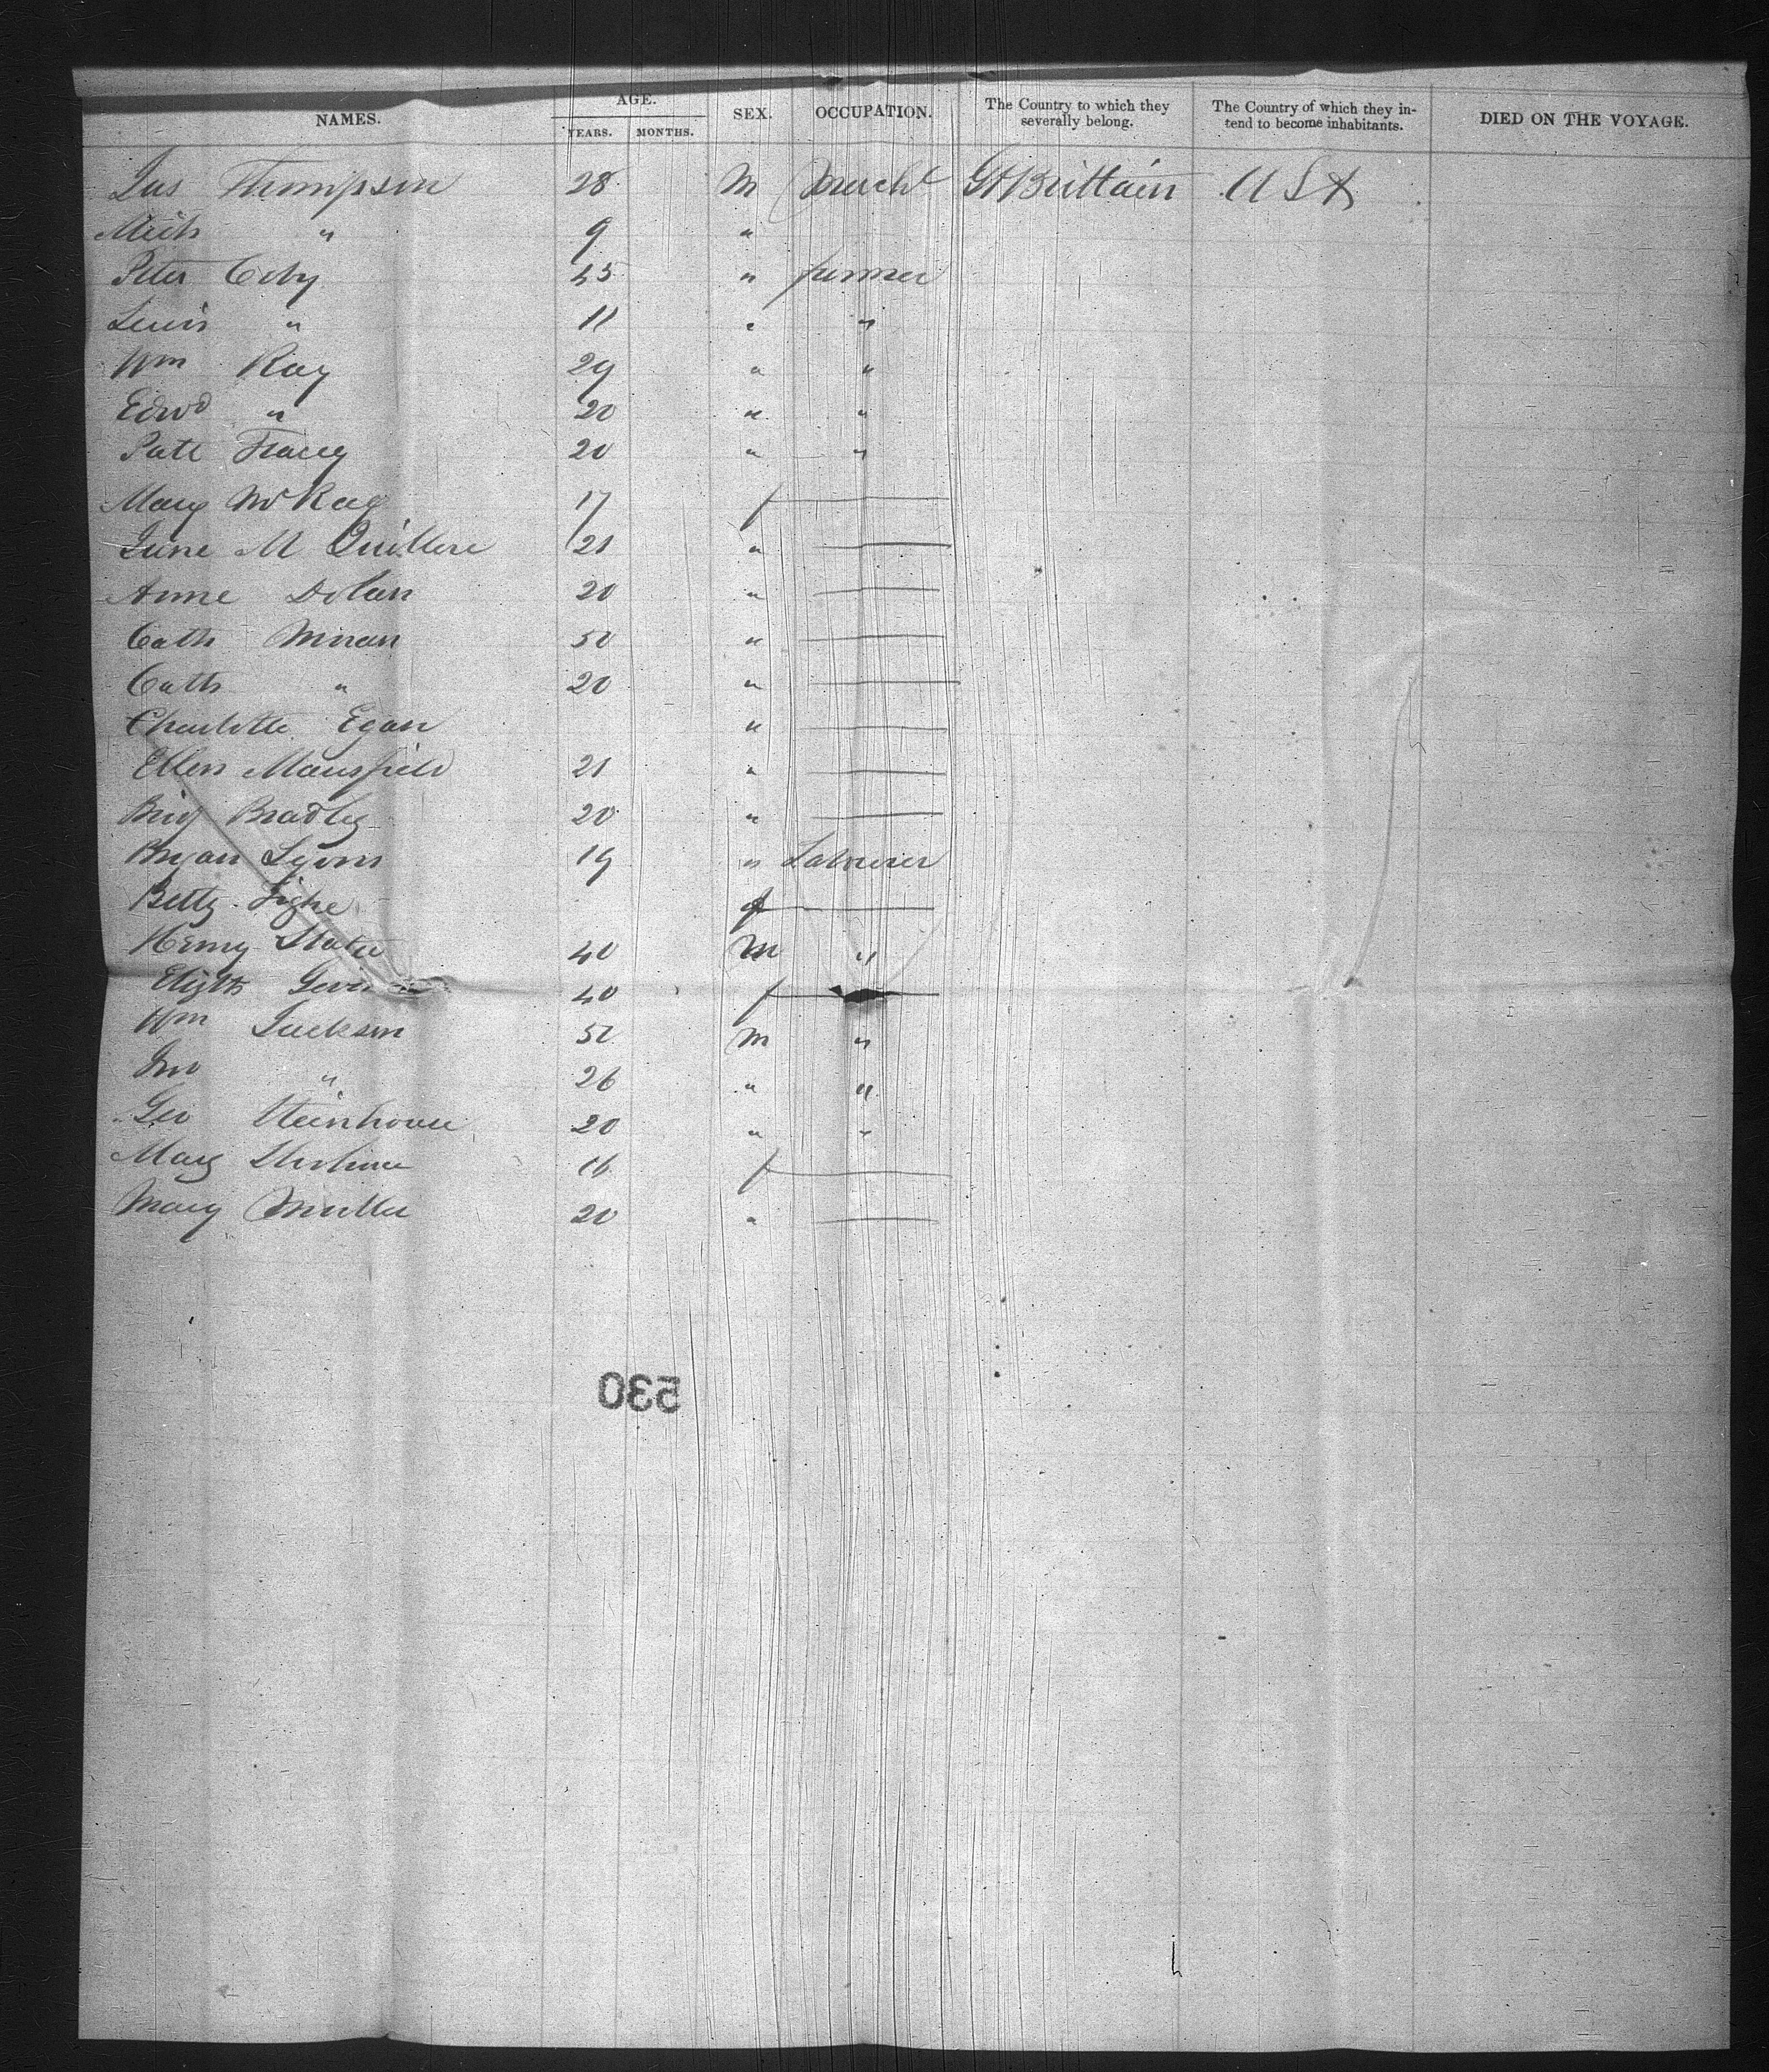 NAMES. AGE. YEARS. MONTHS. SEX. OCCUPATION. The Country to which they severally belong. The Country of which they intend to become inhabitants. DIED ON THE VOYAGE.
Jas Thompson 28 M Mercht Gt Brittain U S A
Mich " 9 "
Peter 45 " farmer
Lewis " 11 " "
Wm Ray 29 " "
Edwd " 20 " "
Patt Tracey 20 " "
Mary McRay 17 f
Jane M Quillen 21 "
Anne Dolan 20 "
Cath 50 "
Cath " 20 "
Charlotte Egan "
Ellen Mansfield 21 "
Brig Bradley 20 "
Bryan Lyons 19 " Labourer
Betty Tighe f
Henry Slater 40 M "
Elizth 40 f
Wm Jackson 50 M "
Jno " 26 " "
Geo Steinhouse 20 " "
Mary 16 f
Mary Muller 20 "
530